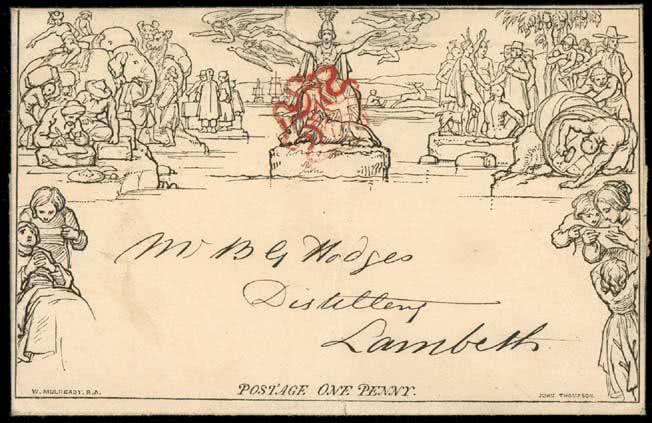 Mr B G Hodges
Distillery
Lambeth
POSTAGE ONE PENNY.
W. MULREADY. R.A.
JOHN THOMPSON